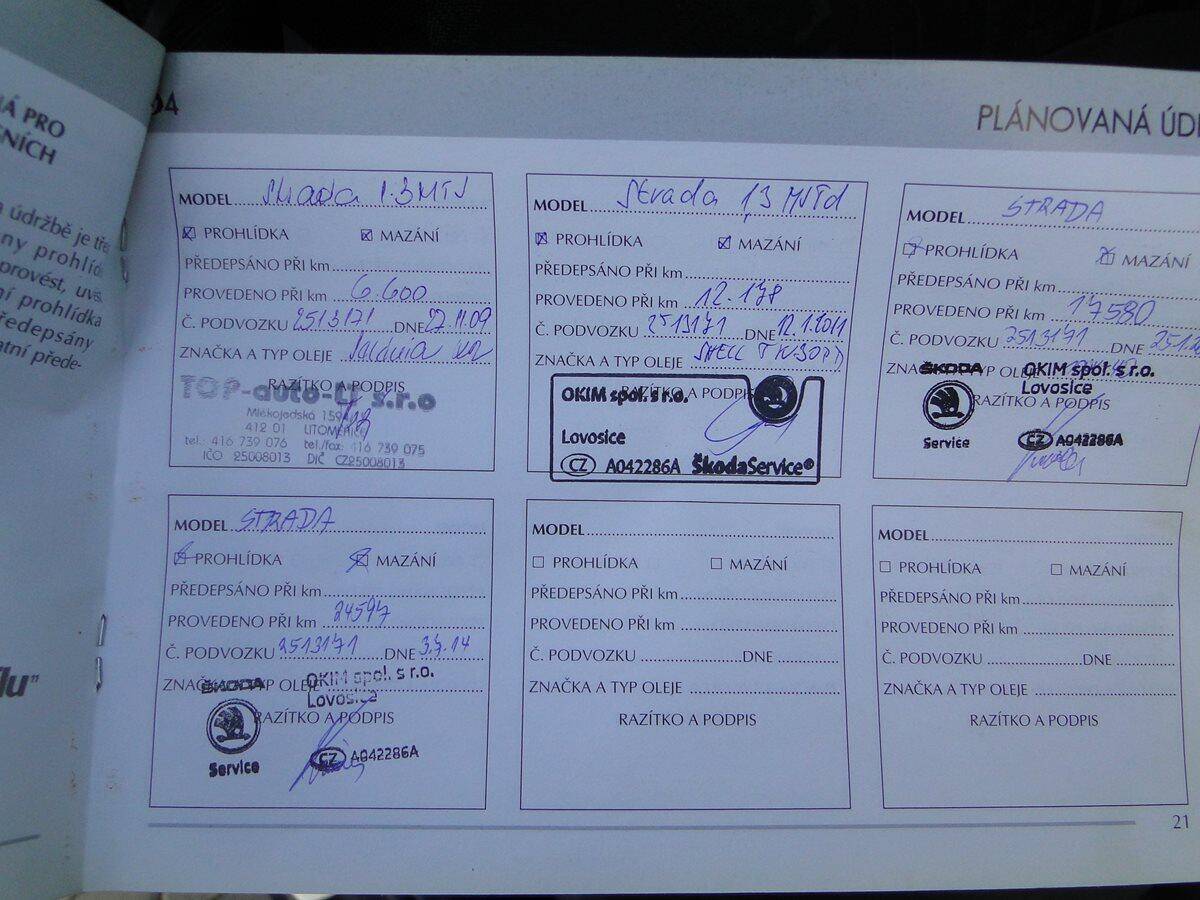 Á PRO
NÍCH
údržbě je
ny prohlíd
provést,
ní prohlídka
ředepsány
atní přede-
lu"
PLÁNOVANÁ ÚD
MODEL Strada 1.3 MTJ
☒ PROHLÍDKA ☒ MAZÁNÍ
PŘEDEPSÁNO PŘI km
PROVEDENO PŘI km 6.600
Č. PODVOZKU 2513171 DNE 27.11.09
ZNAČKA A TYP OLEJE
RAZÍTKO A PODPIS
TOP-auto-LT s.r.o
Mlékojedská
412 01 LITOMĚŘICE
tel.: 416 739 076 tel./fax: 416 739 075
IČO 25008013 DIČ CZ25008013
MODEL Strada 1,3 MJTd
☒ PROHLÍDKA ☒ MAZÁNÍ
PŘEDEPSÁNO PŘI km
PROVEDENO PŘI km 12.178
Č. PODVOZKU 2513171 DNE 12.1.2011
ZNAČKA A TYP OLEJE SHELL
RAZÍTKO A PODPIS
OKIM spol. s r.o.
Lovosice
CZ A042286A ŠkodaService®
MODEL STRADA
☒ PROHLÍDKA ☒ MAZÁNÍ
PŘEDEPSÁNO PŘI km
PROVEDENO PŘI km 17580
Č. PODVOZKU 2513171 DNE
ZNAČKA A TYP OLEJE
RAZÍTKO A PODPIS
ŠKODA OKIM spol. s r.o.
Lovosice
Service CZ A042286A
MODEL STRADA
☒ PROHLÍDKA ☒ MAZÁNÍ
PŘEDEPSÁNO PŘI km
PROVEDENO PŘI km 24597
Č. PODVOZKU 2513171 DNE 3.7.14
ZNAČKA A TYP OLEJE
RAZÍTKO A PODPIS
ŠKODA OKIM spol. s r.o.
Lovosice
Service CZ A042286A
MODEL
☐ PROHLÍDKA ☐ MAZÁNÍ
PŘEDEPSÁNO PŘI km
PROVEDENO PŘI km
Č. PODVOZKU DNE
ZNAČKA A TYP OLEJE
RAZÍTKO A PODPIS
MODEL
☐ PROHLÍDKA ☐ MAZÁNÍ
PŘEDEPSÁNO PŘI km
PROVEDENO PŘI km
Č. PODVOZKU DNE
ZNAČKA A TYP OLEJE
RAZÍTKO A PODPIS
21